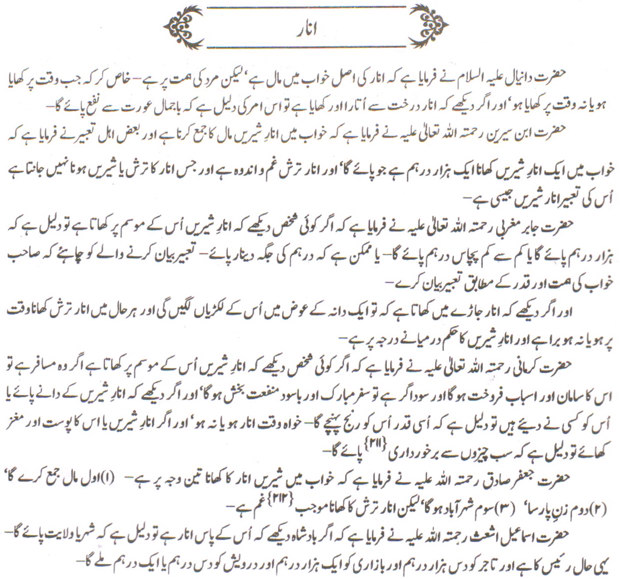 انار
حضرت دانیال علیہ السلام نے فرمایا ہے کہ انار کی اصل خواب میں مال ہے، لیکن مرد کی ہمت پر ہے۔ خاص کر کہ جب وقت پر کھایا
ہو یا نہ وقت پر کھایا ہو، اور اگر دیکھے کہ انار درخت سے اُتارا اور کھایا ہے تو اس امر کی دلیل ہے کہ باجمال عورت سے نفع پائے گا۔
حضرت ابن سیرین رحمتہ اللہ تعالیٰ علیہ نے فرمایا ہے کہ خواب میں انار شیریں مال کا جمع کرنا ہے اور بعض اہل تعبیر نے فرمایا ہے کہ
خواب میں ایک انارِ شیریں کھانا ایک ہزار درہم ہے جو پائے گا، اور انار ترش غم و اندوہ ہے اور جس انار کا ترش یا شیریں ہونا نہیں جانتا ہے
اُس کی تعبیر انار شیریں جیسی ہے۔
حضرت جابر مغربی رحمتہ اللہ تعالیٰ علیہ نے فرمایا ہے کہ اگر کوئی شخص دیکھے کہ انارِ شیریں اُس کے موسم پر کھاتا ہے تو دلیل ہے کہ
ہزار درہم پائے گا یا کم سے کم پچاس درہم پائے گا۔ یا ممکن ہے کہ درہم کی جگہ دینار پائے۔ تعبیر بیان کرنے والے کو چاہئے کہ صاحب
خواب کی ہمت اور قدر کے مطابق تعبیر بیان کرے۔
اور اگر دیکھے کہ انار جاڑے میں کھاتا ہے کہ تو ایک دانہ کے عوض میں اُس کے لکڑیاں لگیں گی اور ہر حال میں انار ترش کھانا وقت
پر ہو یا نہ ہو برا ہے اور انارِ شیریں کا حکم درمیانے درجہ پر ہے۔
حضرت کرمانی رحمتہ اللہ تعالیٰ علیہ نے فرمایا ہے کہ اگر کوئی شخص دیکھے کہ انار شیریں اُس کے موسم پر کھاتا ہے اگر وہ مسافر ہے تو
اس کا سامان اور اسباب فروخت ہو گا اور سوداگر ہے تو سفر مبارک اور باسود منفعت بخش ہو گا، اور اگر دیکھے کہ انارِ شیریں کے دانے پائے یا
اُس کو کسی نے دیئے ہیں تو دلیل ہے کہ اُسی قدر اُس کو رنج پہنچے گا۔ خواہ وقت انار ہو یا نہ ہو، اور اگر انار شیریں یا اس کا پوست اور مغز
کھائے تو دلیل ہے کہ سب چیزوں سے برخورداری {۲۱۱} پائے گا۔
حضرت جعفر صادق رحمتہ اللہ علیہ نے فرمایا ہے کہ خواب میں شیریں انار کا کھانا تین وجہ پر ہے۔ (۱) اول مال جمع کرے گا،
(۲) دوم زنِ پارسا، (۳) سوم شہر آباد ہو گا، لیکن انار ترش کا کھانا موجب {۲۱۲} غم ہے۔
حضرت اسماعیل اشعث رحمتہ اللہ علیہ نے فرمایا ہے کہ اگر بادشاہ دیکھے کہ اُس کے پاس انار ہے تو دلیل ہے کہ شہر یا ولایت پائے گا۔
یہی حال رئیس کا ہے اور تاجر کو دس ہزار درہم اور بازاری کو ایک ہزار درہم اور درویش کو دس درہم یا ایک درہم ملے گا۔